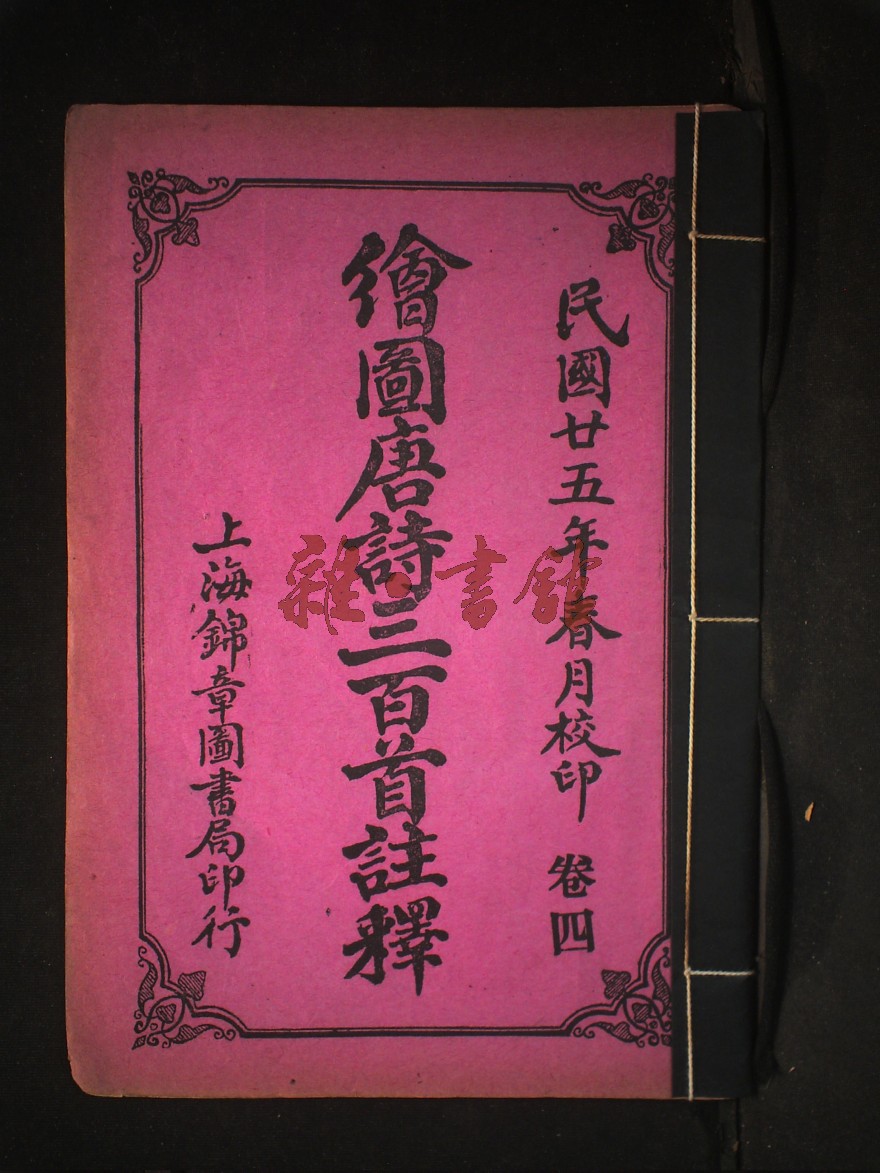 民國廿五年春月校印 卷四
繪圖唐詩三百首註釋
上海錦章圖書局印行
雜·書館